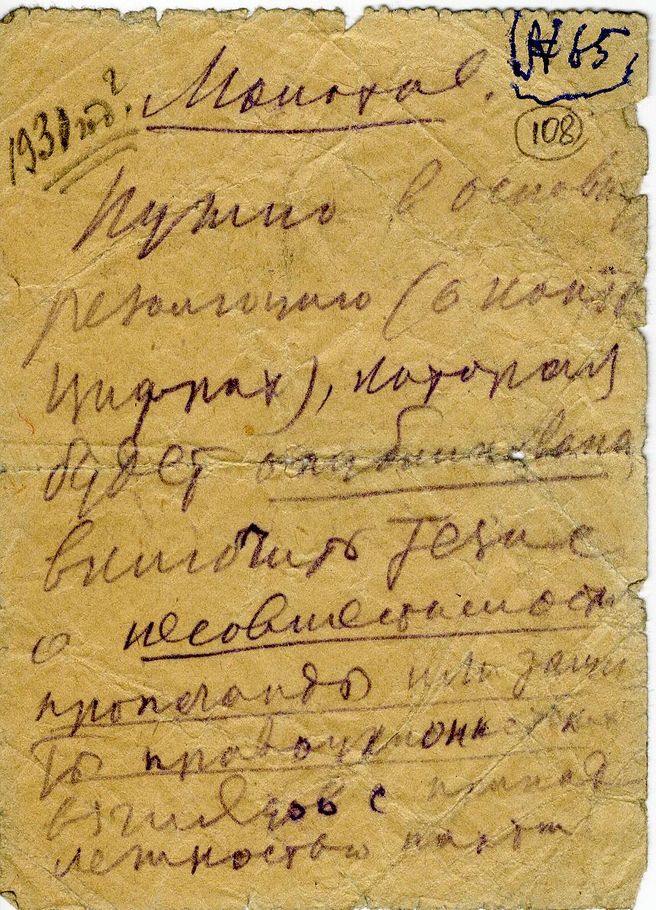 № 65
108
1930 год?
Молотов.
Нужно в основн
резолюцию (о контр
цифрах), которая
будет опубликована
включить тезис
о несовместимости
пропаганды или защи
ты правоуклонистских
взглядов с принад
лежностью к парт